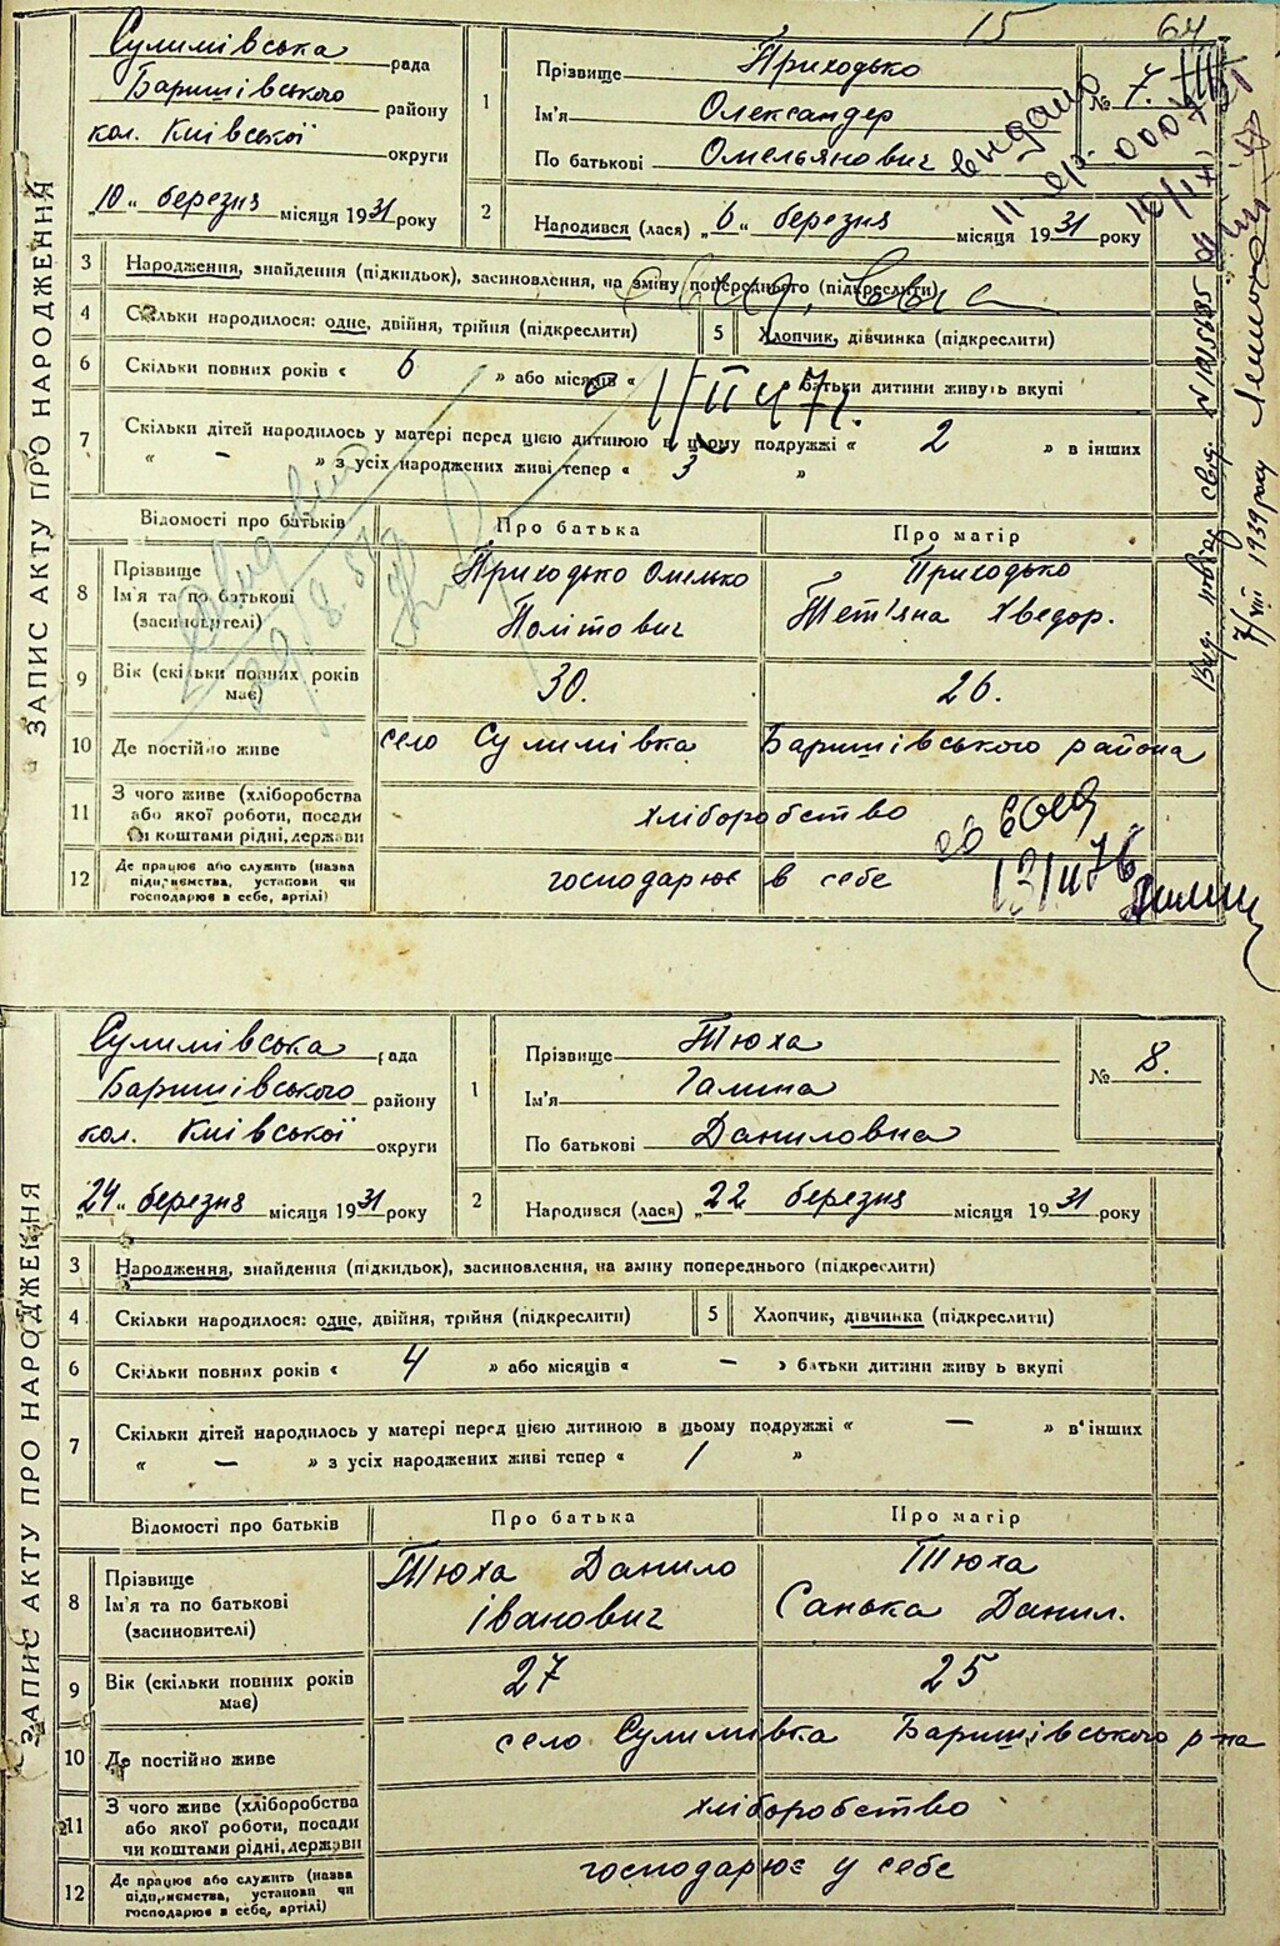 15 64
ЗАПИС АКТУ ПРО НАРОДЖЕННЯ
Сулимівська рада
Баришівського району
кол. Київської округи
„10“ березня місяця 1931 року
1 Прізвище Приходько
Ім'я Олександер
По батькові Омельянович
№ 7.
видано
2 Народився (лася) „6“ березня місяця 1931 року
3 Народження, знайдення (підкидьок), засиновлення, на зміну попереднього (підкреслити)
4 Скільки народилося: одне, двійня, трійня (підкреслити) 5 Хлопчик, дівчинка (підкреслити)
6 Скільки повних років « 6 » або місяців « батьки дитини живуть вкупі
7 Скільки дітей народилось у матері перед цією дитиною в цьому подружжі « 2 » в інших
« – » з усіх народжених живі тепер « 3 »
Відомості про батьків Про батька Про матір
8 Прізвище Ім'я та по батькові (засиновителі)
Приходько Омелько Політович
Приходько Тет'яна Хведор.
9 Вік (скільки повних років має) 30. 26.
10 Де постійно живе село Сулимівка Баришівського района
11 З чого живе (хліборобства або якої роботи, посади чи коштами рідні, держави хліборобство
12 Де працює або служить (назва підприємства, установи чи господарює в себе, артілі) господарює в себе
7/VIII 1939 року
ЗАПИС АКТУ ПРО НАРОДЖЕННЯ
Сулимівська рада
Баришівського району
кол. Київської округи
„24“ березня місяця 1931 року
1 Прізвище Тюха
Ім'я Галина
По батькові Даниловна
№ 8.
2 Народився (лася) „22 березня місяця 1931 року
3 Народження, знайдення (підкидьок), засиновлення, на зміну попереднього (підкреслити)
4 Скільки народилося: одне, двійня, трійня (підкреслити) 5 Хлопчик, дівчинка (підкреслити)
6 Скільки повних років « 4 » або місяців « – » батьки дитини живу ь вкупі
7 Скільки дітей народилось у матері перед цією дитиною в цьому подружжі « – » в інших
« – » з усіх народжених живі тепер « 1 »
Відомості про батьків Про батька Про матір
8 Прізвище Ім'я та по батькові (засиновителі)
Тюха Данило Іванович
Тюха Санька Данил.
9 Вік (скільки повних років має) 27 25
10 Де постійно живе село Сулимівка Баришівського р-на
11 З чого живе (хліборобства або якої роботи, посади чи коштами рідні, держави хліборобство
12 Де працює або служить (назва підприємства, установи чи господарює в себе, артілі) господарює у себе